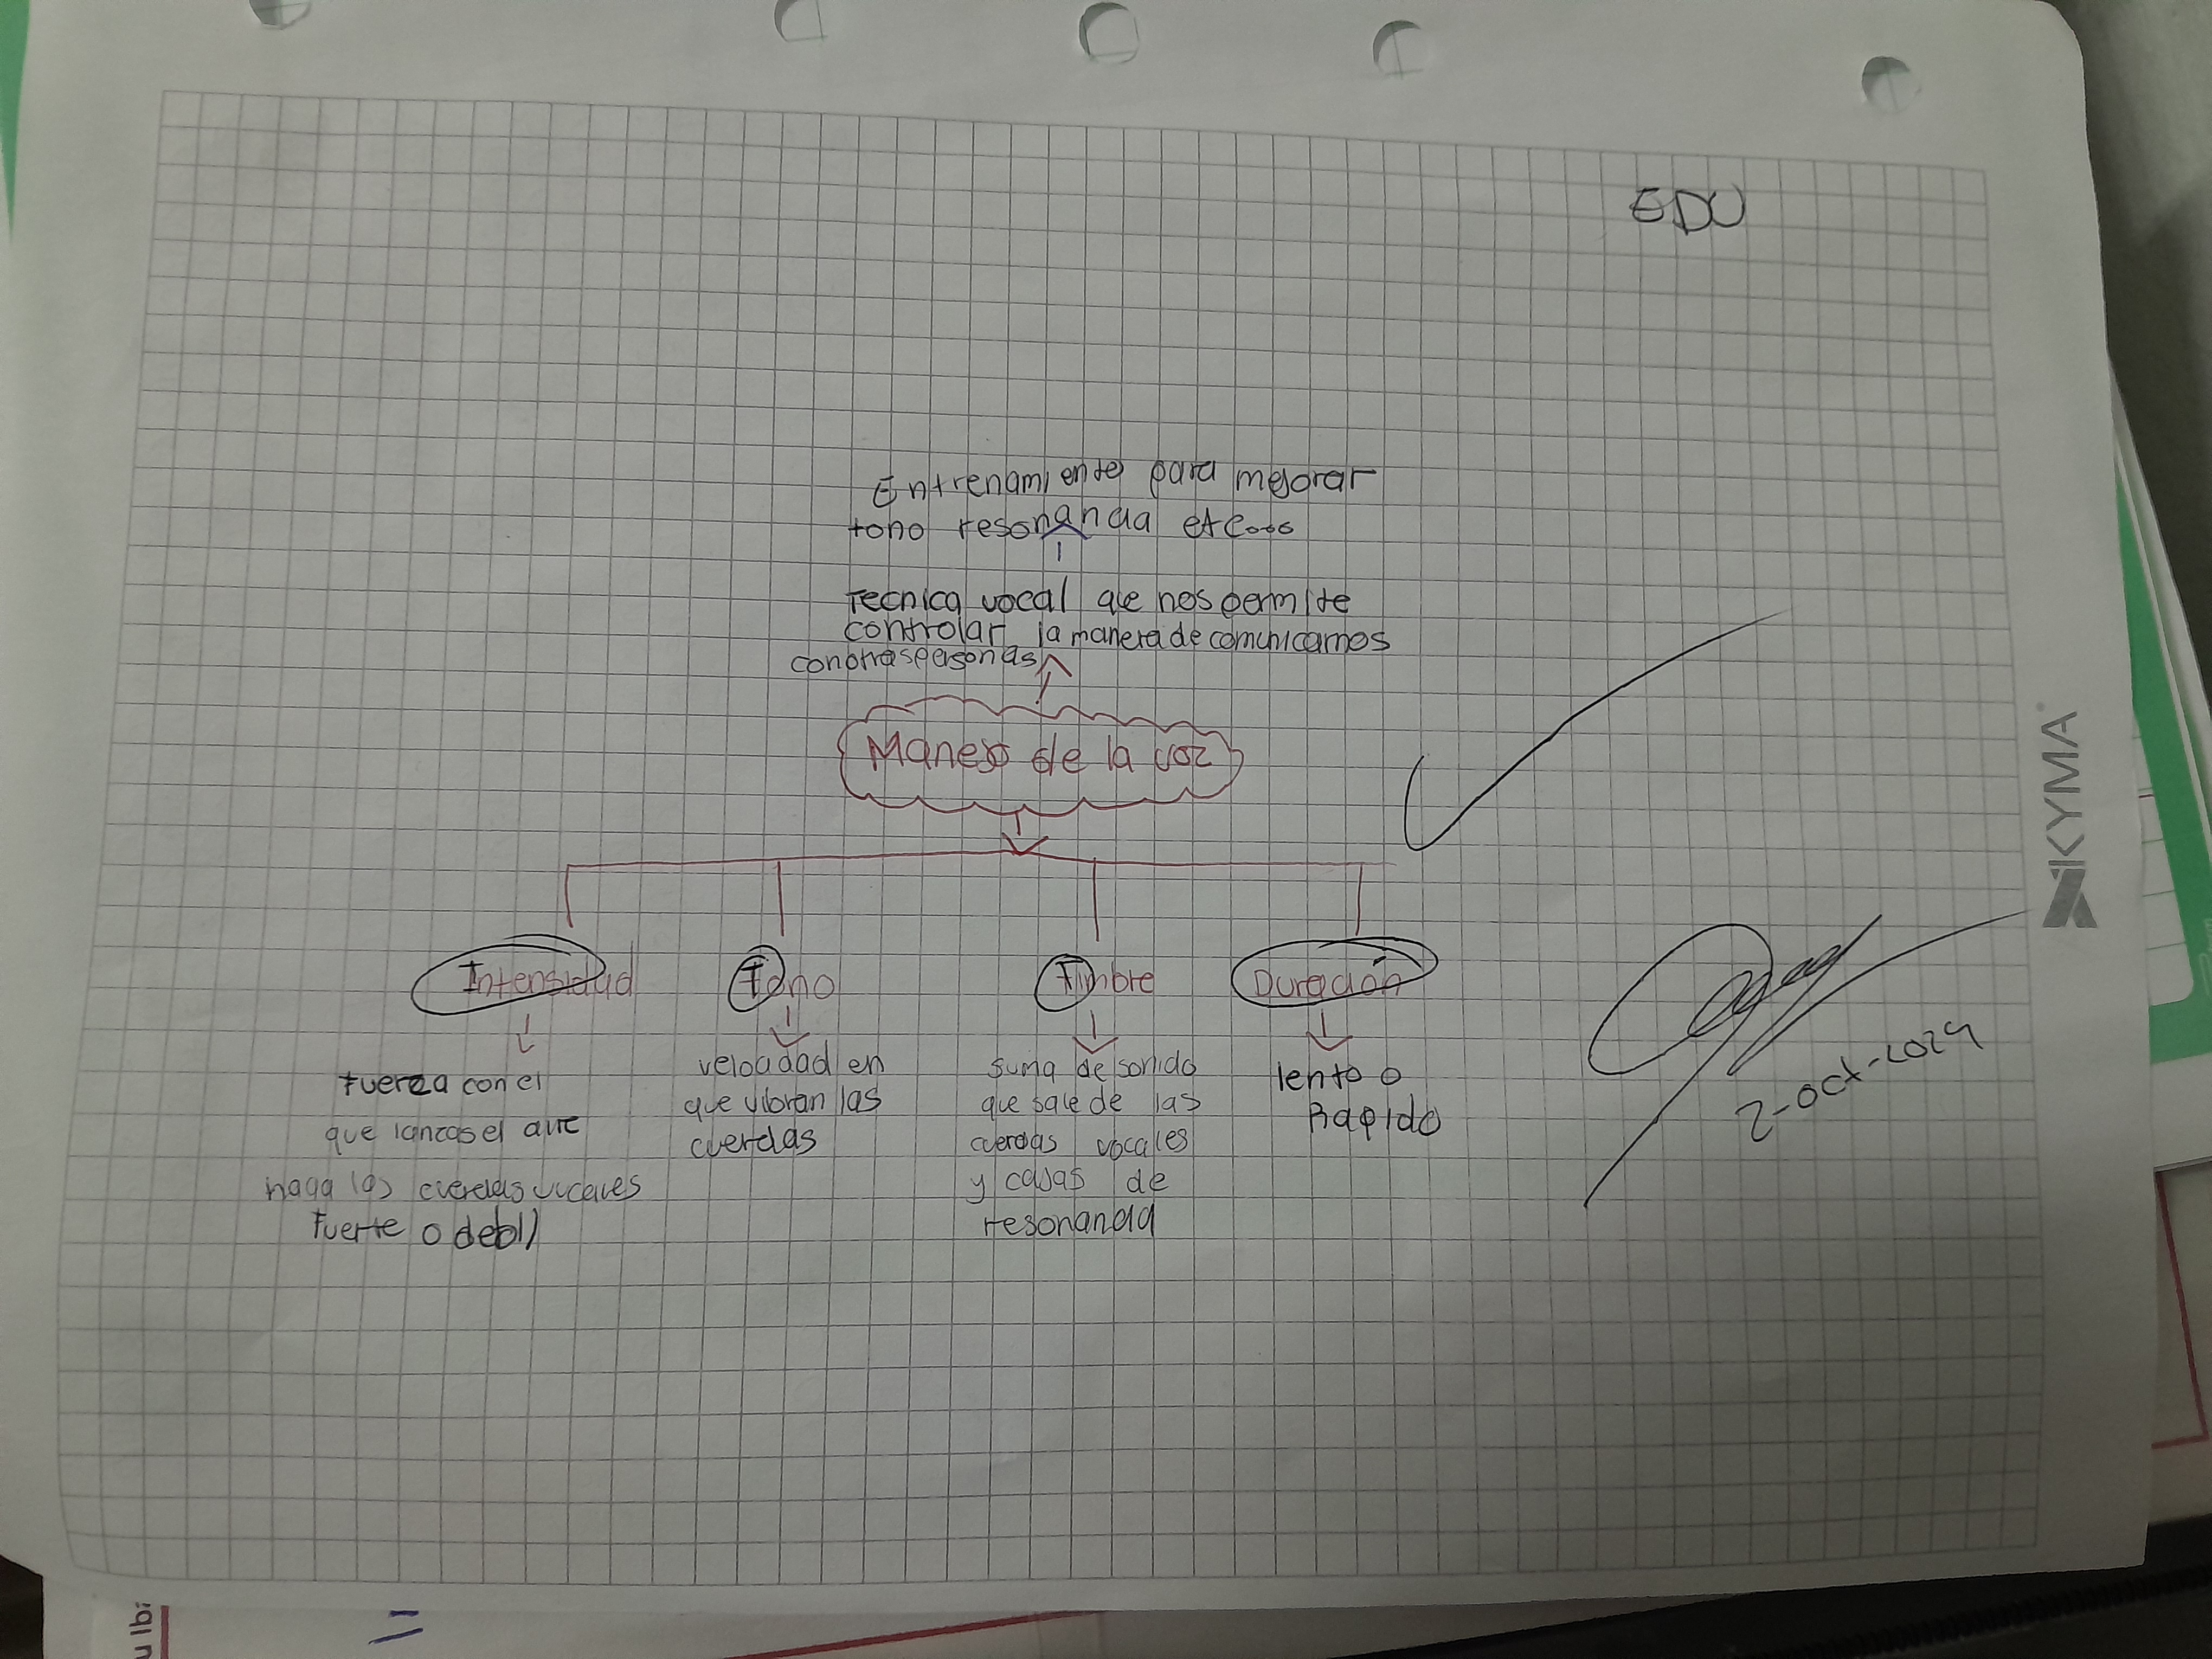 EDU
Entrenamiento para mejorar
tono resonancia etc...
Tecnica vocal que nos permite
controlar la manera de comunicarnos
con otras personas
Manejo de la voz
Intensidad
Tono
Timbre
Duración
fuerza con el
que lanzas el aire
haga las cuerdas vocales
fuerte o debil
velocidad en
que vibran las
cuerdas
suma de sonido
que sale de las
cuerdas vocales
y cajas de
resonancia
lento o
Rapido
2-oct-2024
KYMA